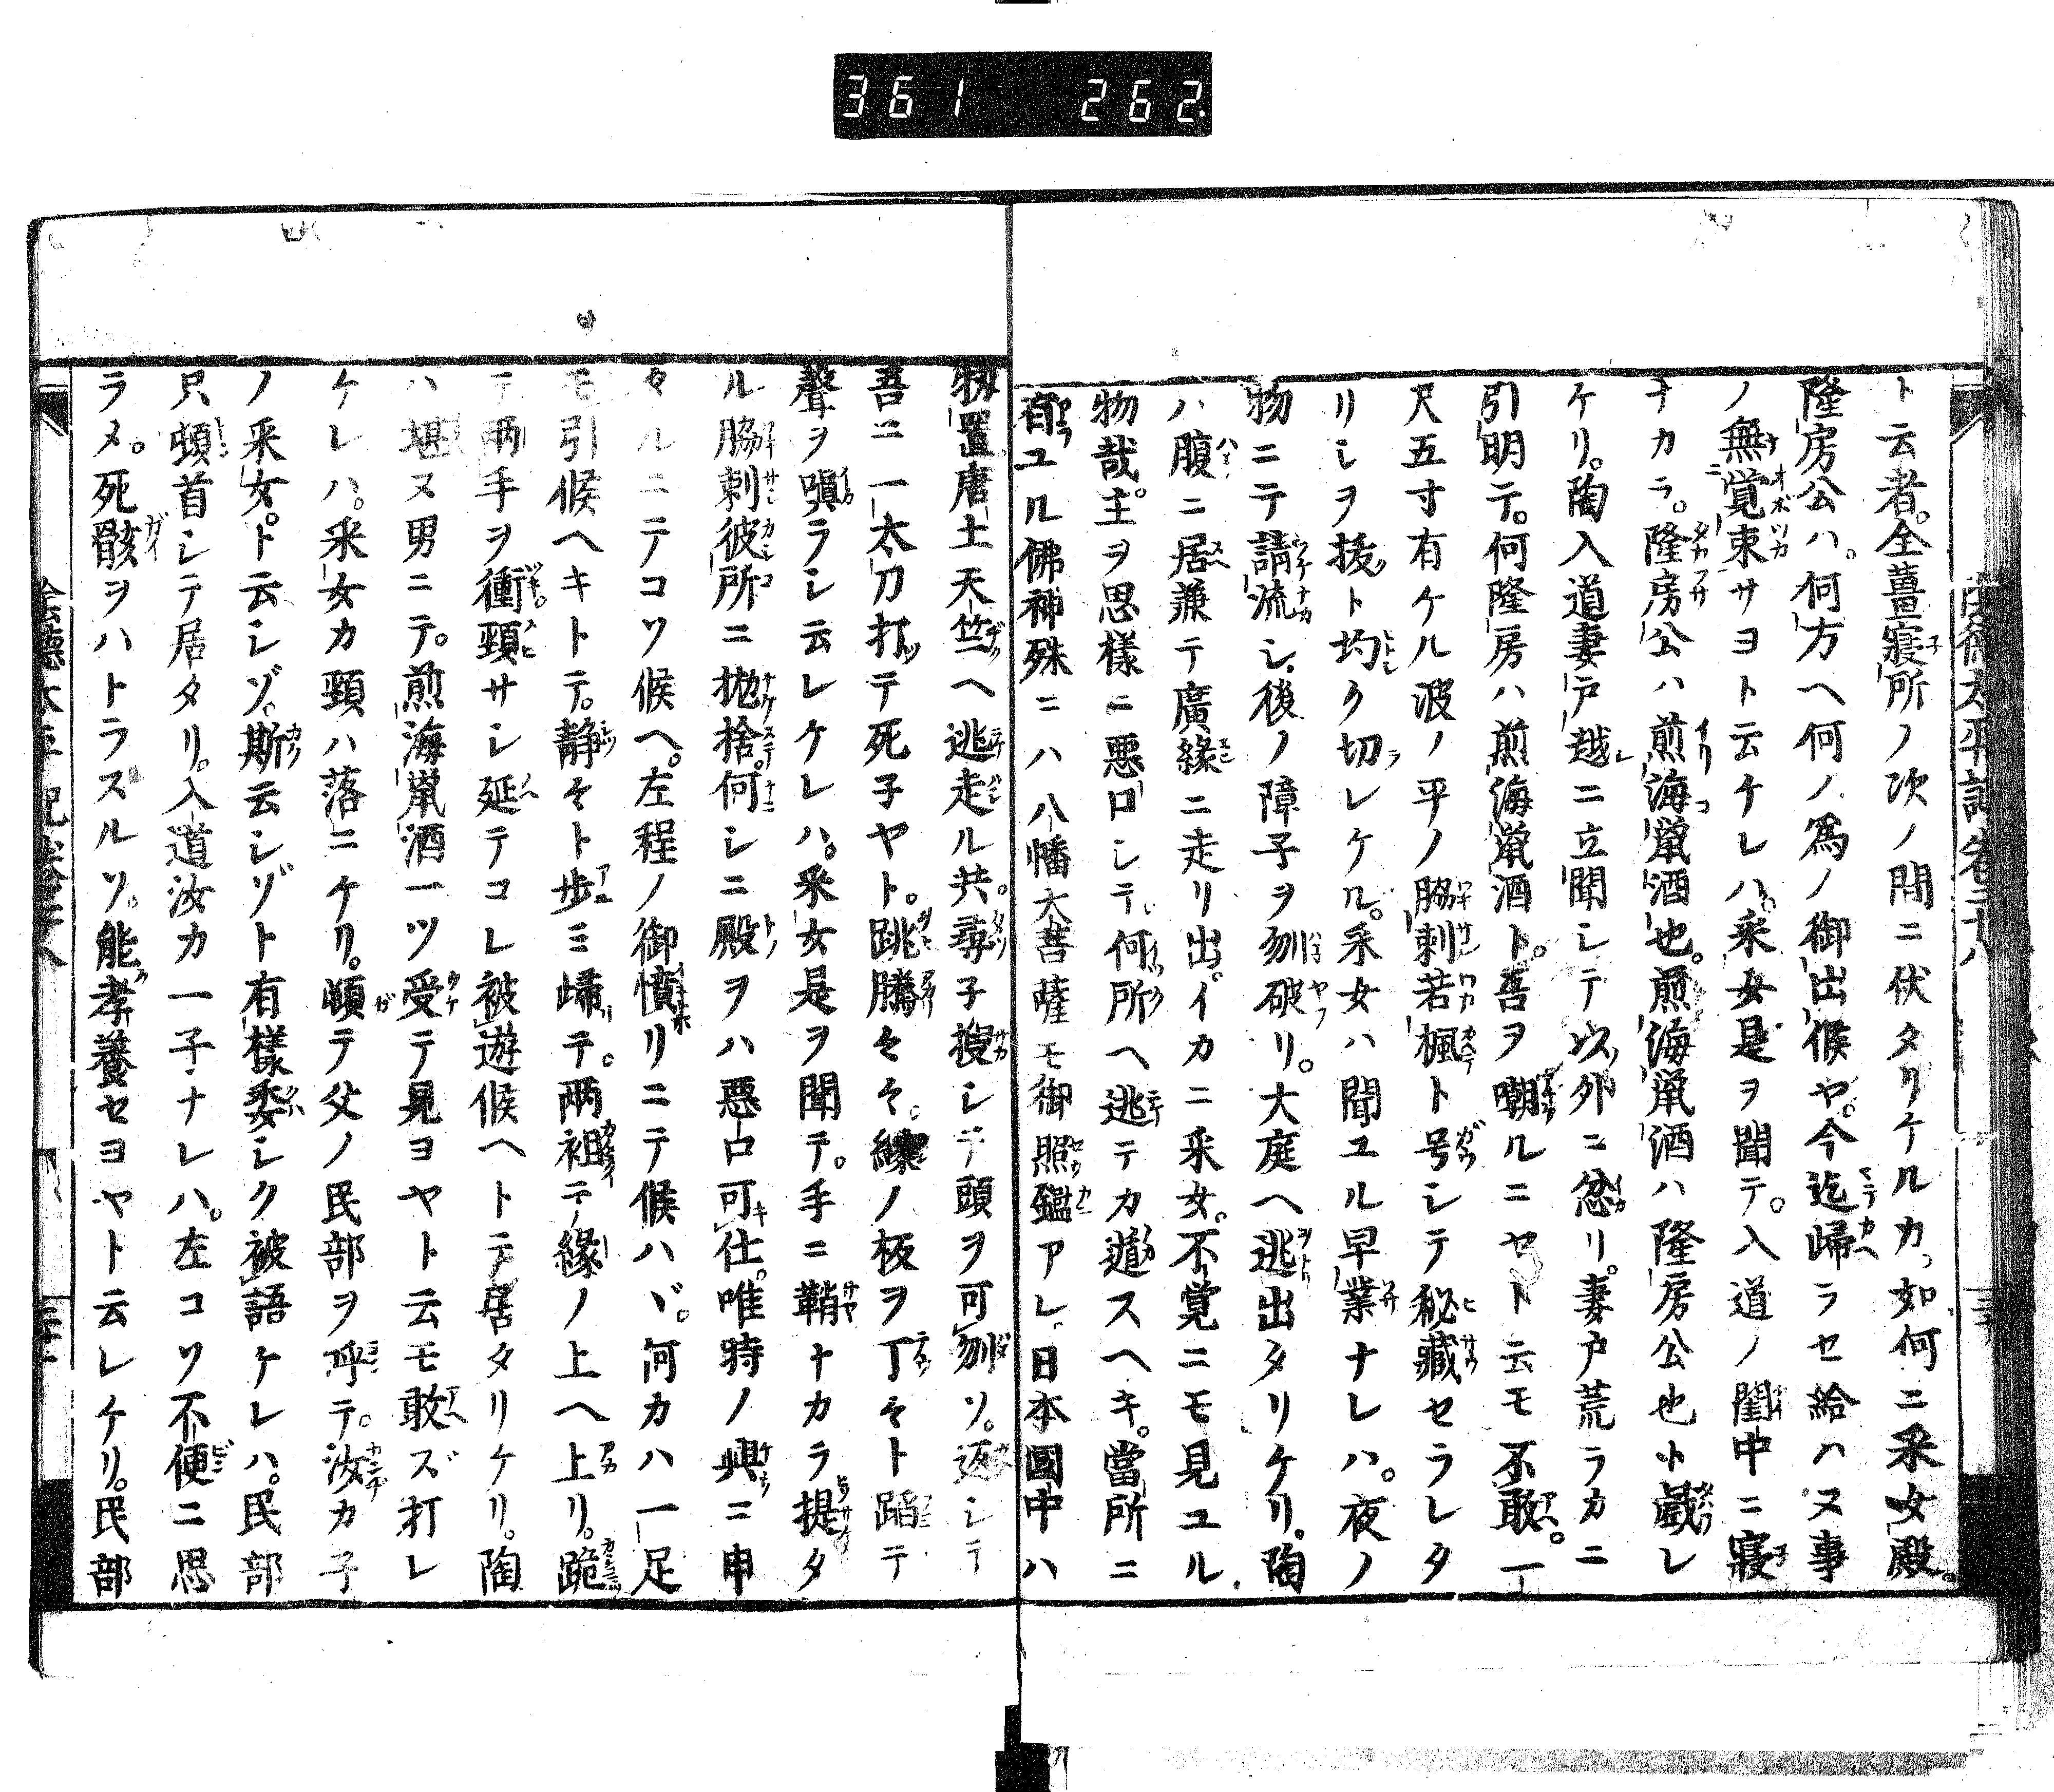 361 262
ト云者。全薑寢所ノ次ノ間ニ伏タリケルカ、如何ニ采女殿。
隆房公ハ。何方ヘ何ノ爲ノ御出候ヤ。今迄歸ラセ給ハヌ事
ノ無覚束サヨト云ケレハ。采女是ヲ聞テ。入道ノ閨中ニ寢
ナカラ。隆房公ハ煎海鼡酒也。煎海鼡酒ハ隆房公也ト戯レ
ケリ。陶入道妻戸越ニ立聞シテ以外ニ忿リ。妻戸荒ラカニ
引明テ。何隆房ハ煎海鼡酒ト。吾ヲ嘲ルニヤト云モ不敢。一
尺五寸有ケル波ノ平ノ脇刺若楓ト号シテ秘藏セラレタ
リシヲ拔ト均ク切レケル。采女ハ聞ユル早業ナレハ。夜ノ
物ニテ請流シ、後ノ障子ヲ刎破リ。大庭ヘ逃出タリケリ。陶
ハ腹ニ居兼テ廣縁ニ走リ出。イカニ采女。不覚ニモ見ユル
物哉。主ヲ思樣ニ悪口シテ。何所ヘ逃テカ遁スヘキ。當所ニ
有ユル佛神殊ニハ八幡大菩薩モ御照鑑アレ。日本國中ハ
物置唐土天竺ヘ逃走ル共。尋子搜シテ頭ヲ可刎ソ。返シテ
吾ニ一太刀打テ死子ヤト。跳騰々々。縁ノ板ヲ丁々ト蹈テ
聲ヲ嗔ラシ云レケレハ。采女是ヲ聞テ。手ニ鞘ナカラ提タ
ル脇刺彼所ニ抛捨。何シニ殿ヲハ悪口可仕。唯時ノ興ニ申
タルニテコソ候ヘ。左程ノ御憤リニテ候ハヾ。何カハ一足
モ引候ヘキトテ。静々ト歩ミ歸テ。兩袒テ縁ノ上ヘ上リ。跪
テ兩手ヲ衝。頸サシ延テコレ被遊候ヘトテ居タリケリ。陶
ハ堪ヌ男ニテ。煎海鼡酒一ツ受テ見ヨヤト云モ敢ズ打レ
ケレハ。采女カ頸ハ落ニケリ。頓テ父ノ民部ヲ呼テ。汝カ子
ノ采女。ト云シゾ。斯云シゾト有樣委シク被語ケレハ。民部
只頓首シテ居タリ。入道汝カ一子ナレハ。左コソ不便ニ思
ラメ。死骸ヲハトラスルソ。能孝養セヨヤト云レケリ。民部